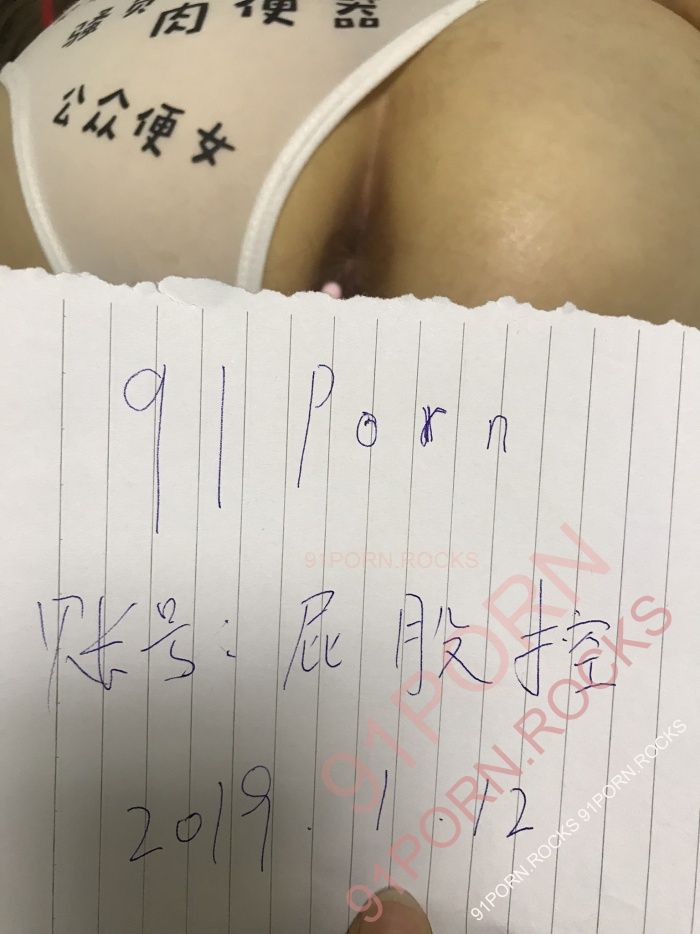 肉便器
公众便女
91Porn
91PORN.ROCKS
账号：屁股控
91PORN
91PORN.ROCKS
2019.1.12
91PORN.ROCKS 91PORN.ROCKS